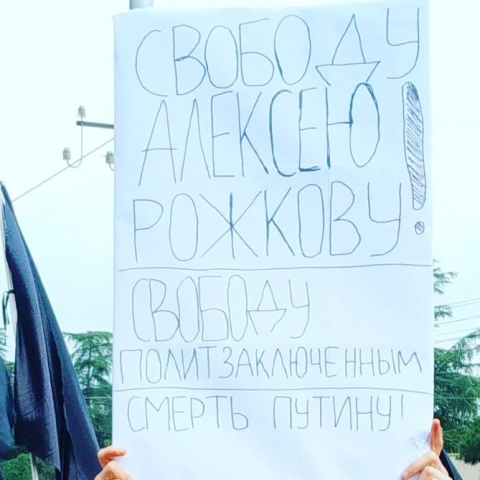 СВОБОДУ
АЛЕКСЕЮ
РОЖКОВУ!
СВОБОДУ
ПОЛИТЗАКЛЮЧЕННЫМ
СМЕРТЬ ПУТИНУ!